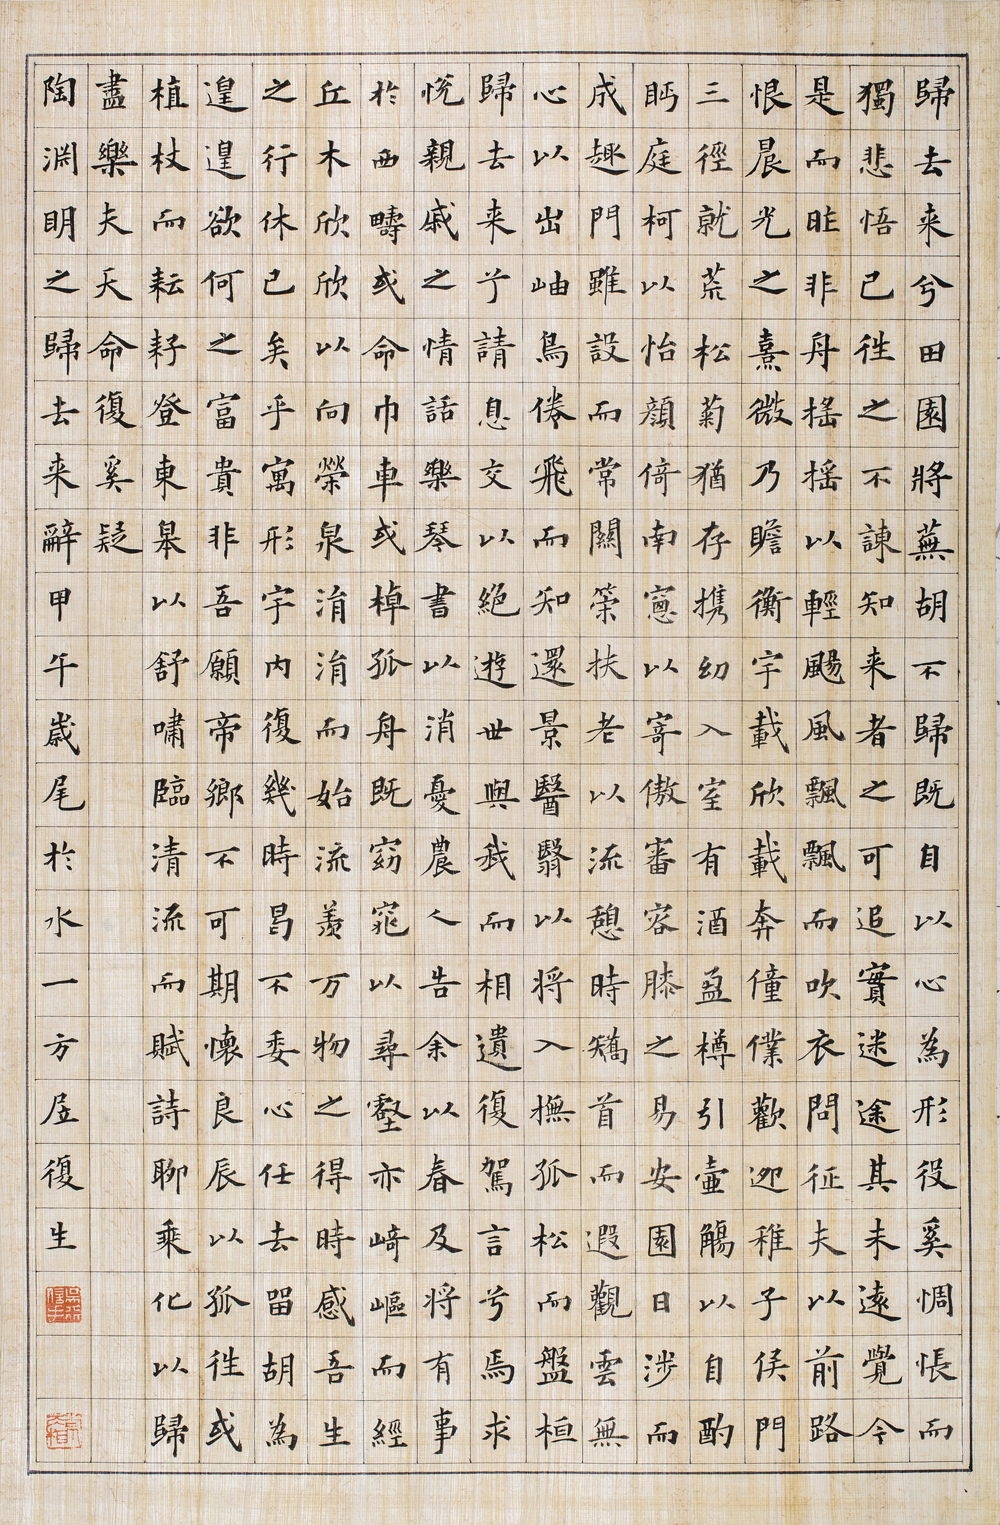 歸去来兮田園將蕪胡不歸既自以心為形役奚惆悵而
獨悲悟已往之不諫知来者之可追實迷途其未遠覺今
是而昨非舟搖搖以輕颺風飄飄而吹衣問征夫以前路
恨晨光之熹微乃瞻衡宇載欣載奔僮僕歡迎稚子侯門
三徑就荒松菊猶存携幼入室有酒盈樽引壺觴以自酌
眄庭柯以怡顏倚南窓以寄傲審容膝之易安園日涉而
成趣門雖設而常關策扶老以流憩時矯首而遐觀雲無
心以出岫鳥倦飛而知還景翳翳以将入撫孤松而盤桓
歸去来兮請息交以絕遊世與我而相遺復駕言兮焉求
悅親戚之情話樂琴書以消憂農人告余以春及将有事
於西疇或命巾車或棹孤舟既窈窕以尋壑亦崎嶇而經
丘木欣欣以向榮泉涓涓而始流羨万物之得時感吾生
之行休已矣乎寓形宇内復幾時曷不委心任去留胡為
遑遑欲何之富貴非吾願帝鄉不可期懷良辰以孤往或
植杖而耘耔登東皋以舒嘯臨清流而賦詩聊乘化以歸
盡樂夫天命復奚疑
陶渊明之歸去来辭甲午歲尾於水一方居復生